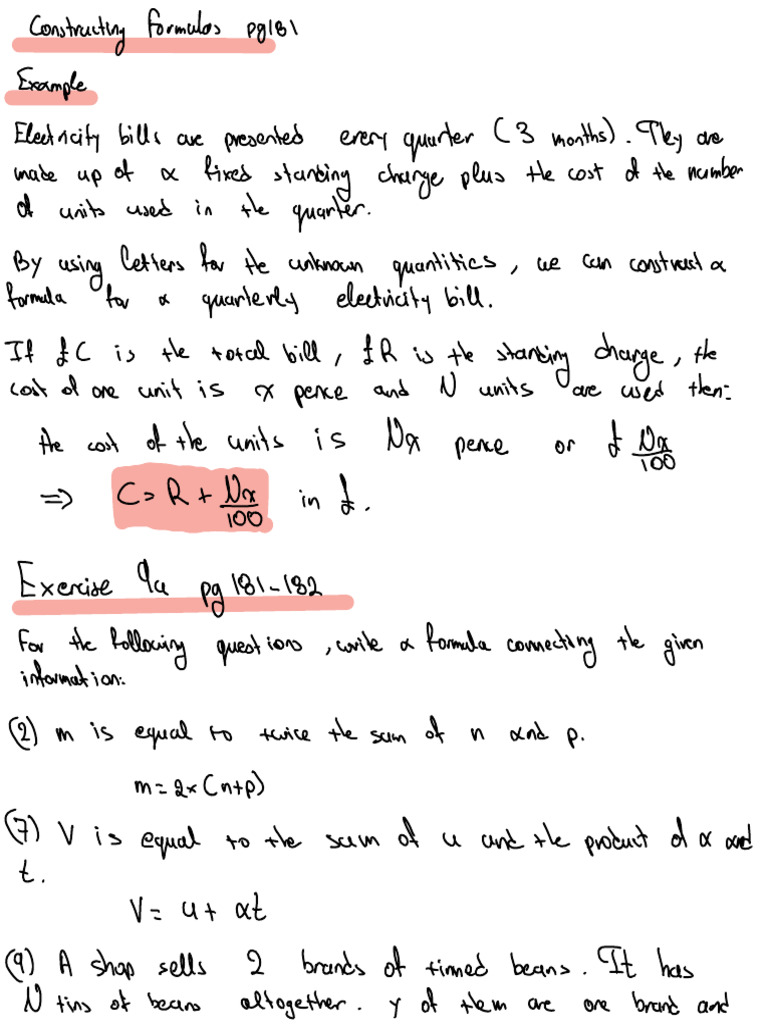 Constructing formulas pg181
Example
Electricity bills are presented every quarter (3 months). They are
made up of a fixed standing charge plus the cost of the number
of units used in the quarter.
By using letters for the unknown quantities, we can construct a
formula for a quarterly electricity bill.
If £C is the total bill, £R is the standing charge, the
cost of one unit is x pence and N units are used then:
the cost of the units is Nx pence or £ Nx/100
=> C = R + Nx/100 in £.
Exercise 9a pg 181-182
For the following questions, write a formula connecting the given
information:
(2) m is equal to twice the sum of n and p.
m = 2×(n+p)
(7) V is equal to the sum of u and the product of a and
t.
V = u + at
(9) A shop sells 2 brands of tinned beans. It has
N tins of beans altogether. y of them are one brand and